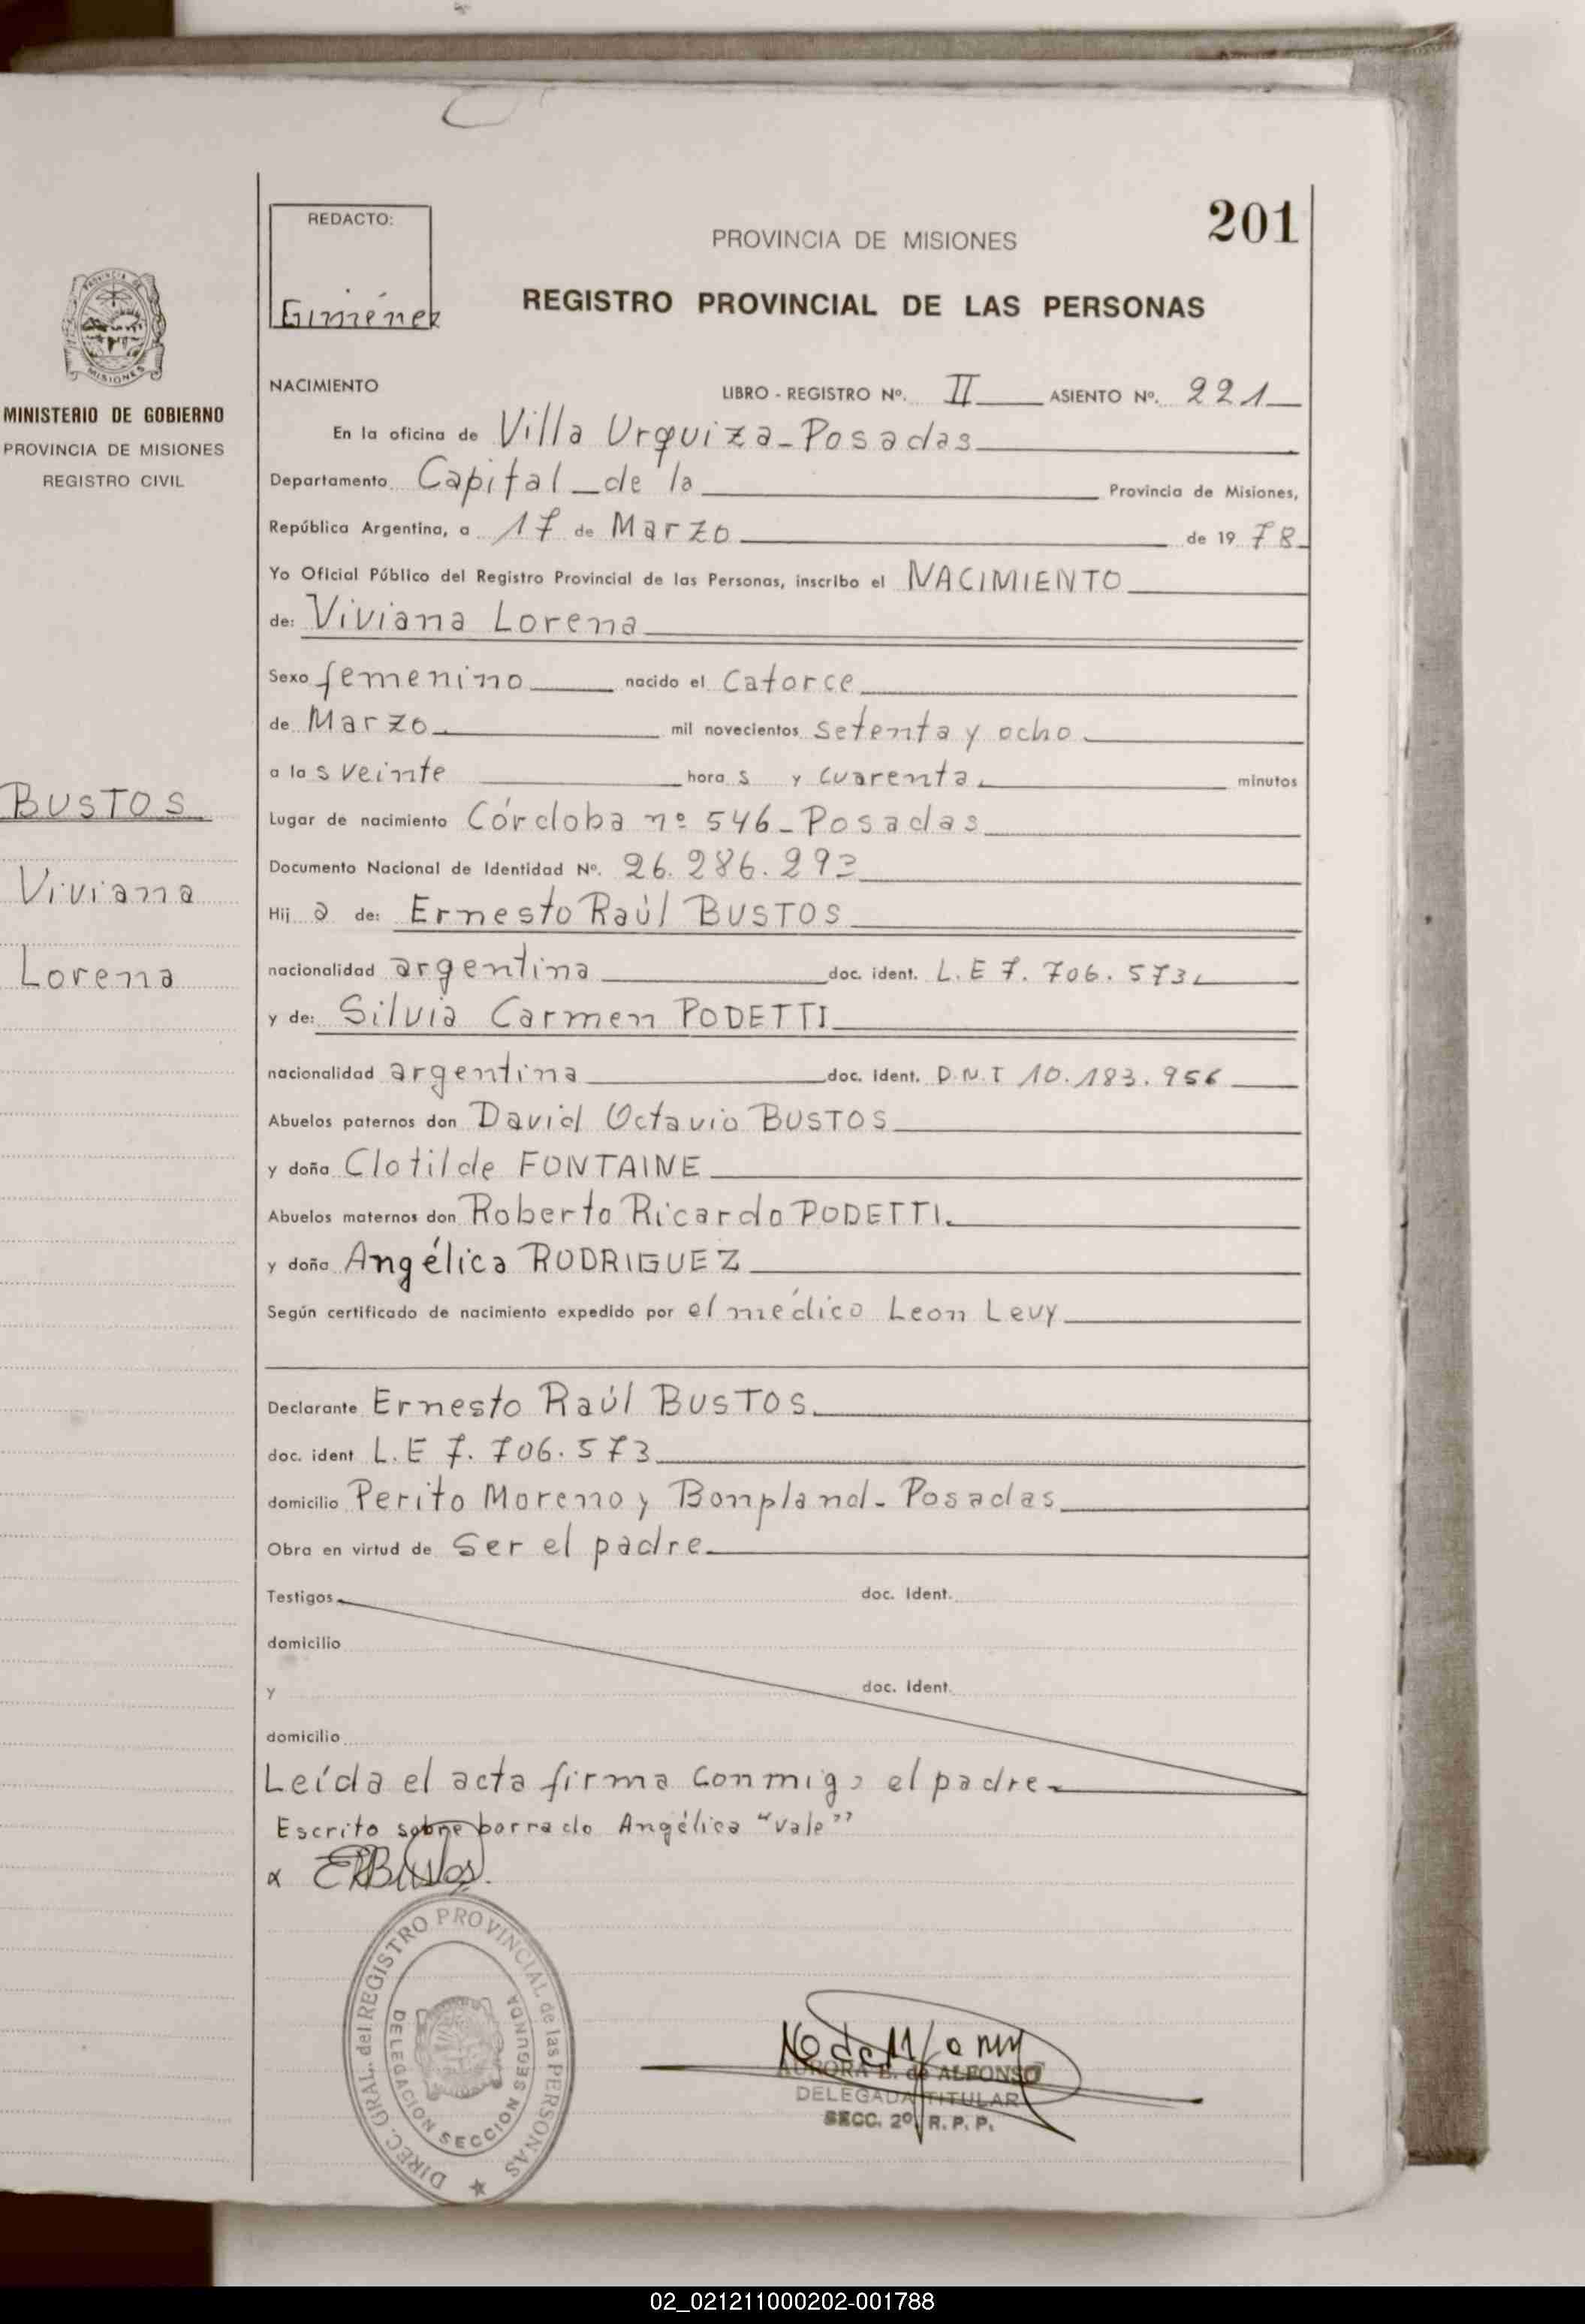 201
REDACTO:
Gimenez
PROVINCIA DE MISIONES
REGISTRO PROVINCIAL DE LAS PERSONAS
PROVINCIA DE
MISIONES
MINISTERIO DE GOBIERNO
PROVINCIA DE MISIONES
REGISTRO CIVIL
BUSTOS
Viviana
Lorena
NACIMIENTO
LIBRO - REGISTRO Nº. II ASIENTO Nº. 221
En la oficina de Villa Urquiza - Posadas
Departamento Capital de la Provincia de Misiones,
República Argentina, a 17 de Marzo de 1978
Yo Oficial Público del Registro Provincial de las Personas, inscribo el NACIMIENTO
de: Viviana Lorena
Sexo femenino nacido el Catorce
de Marzo mil novecientos setenta y ocho
a las veinte horas y cuarenta minutos
Lugar de nacimiento Córdoba nº 546 - Posadas
Documento Nacional de Identidad Nº. 26.286.292
Hija de: Ernesto Raúl BUSTOS
nacionalidad argentina doc. ident. L.E 7.706.573
y de: Silvia Carmen PODETTI
nacionalidad argentina doc. ident. D.N.I 10.183.956
Abuelos paternos don David Octavio BUSTOS
y doña Clotilde FONTAINE
Abuelos maternos don Roberto Ricardo PODETTI.
y doña Angélica RODRIGUEZ
Según certificado de nacimiento expedido por el médico Leon Levy
Declarante Ernesto Raúl BUSTOS
doc. ident L.E 7.706.573
domicilio Perito Moreno y Bonpland - Posadas
Obra en virtud de Ser el padre
Testigos doc. Ident.
domicilio
y doc. Ident.
domicilio
Leída el acta firma conmigo el padre
Escrito sobre borrado Angélica "Vale"
x ERBustos
DIREC. GRAL. del REGISTRO PROVINCIAL de las PERSONAS
DELEGACION SECCION SEGUNDA
AURORA E. de ALFONSO
DELEGADA TITULAR
SECC. 2º R. P. P.
02_021211000202-001788